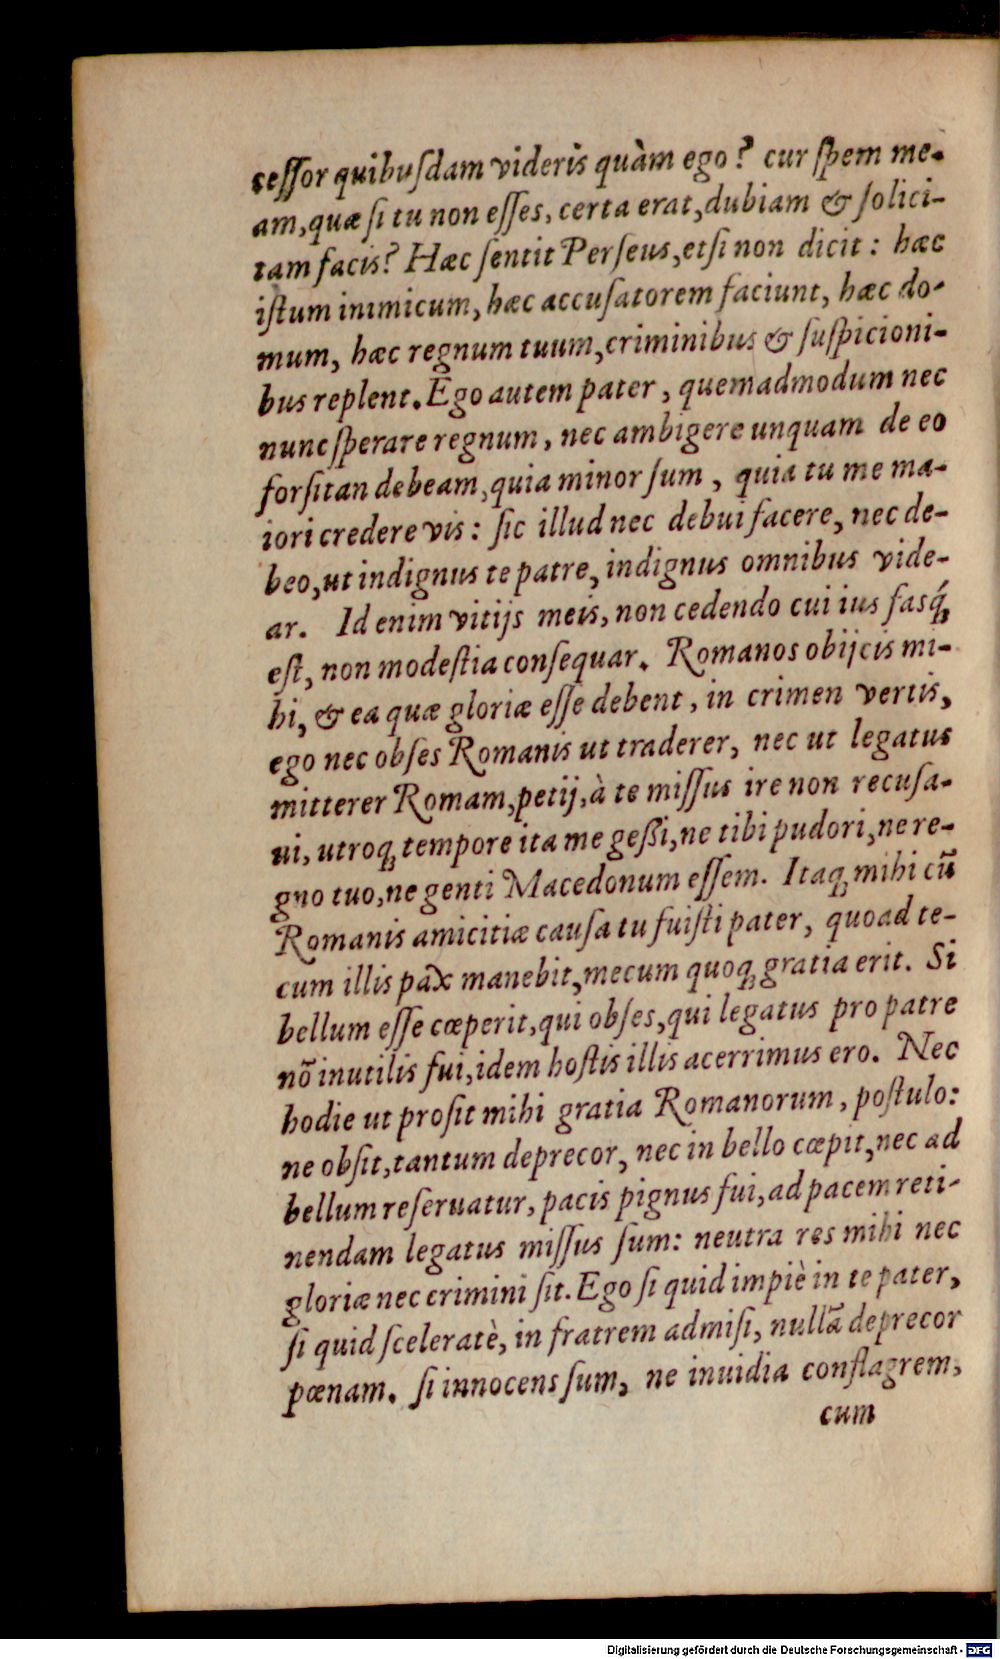 cessor quibusdam videris quàm ego? cur spem me-
am, quæ si tu non esses, certa erat, dubiam & solici-
tam facis? Hæc sentit Perseus, etsi non dicit: hæc
istum inimicum, hæc accusatorem faciunt, hæc do-
mum, hæc regnum tuum, criminibus & suspicioni-
bus replent. Ego autem pater, quemadmodum nec
nunc sperare regnum, nec ambigere unquam de eo
forsitan debeam, quia minor sum, quia tu me ma-
iori credere vis: sic illud nec debui facere, nec de-
beo, ut indignus te patre, indignus omnibus vide-
ar. Id enim vitijs meis, non cedendo cui ius fasq́;
est, non modestia consequar. Romanos obijcis mi-
hi, & ea quæ gloriæ esse debent, in crimen vertis,
ego nec obses Romanis ut traderer, nec ut legatus
mitterer Romam, petij, à te missus ire non recusa-
ui, utroq; tempore ita me geßi, ne tibi pudori, ne re-
gno tuo, ne genti Macedonum essem. Itaq; mihi cũ
Romanis amicitiæ causa tu fuisti pater, quoad te-
cum illis pax manebit, mecum quoq; gratia erit. Si
bellum esse cœperit, qui obses, qui legatus pro patre
nõ inutilis fui, idem hostis illis acerrimus ero. Nec
hodie ut prosit mihi gratia Romanorum, postulo:
ne obsit, tantum deprecor, nec in bello cœpit, nec ad
bellum reseruatur, pacis pignus fui, ad pacem reti-
nendam legatus missus sum: neutra res mihi nec
gloriæ nec crimini sit. Ego si quid impiè in te pater,
si quid sceleratè, in fratrem admisi, nullã deprecor
pœnam. si innocens sum, ne inuidia conflagrem,
cum
Digitalisierung gefördert durch die Deutsche Forschungsgemeinschaft - DFG